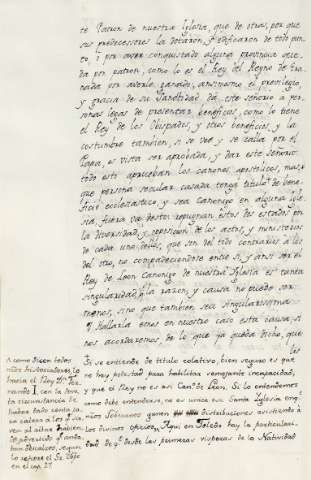 te Patron de nuestra Iglesia, que de otras, por que
sus predecessores la dotaron, y edificaron de todo pun-
to, i por aver conquistado alguna provincia suce-
da por patron, como lo es el Rey del Reyno de Gra-
nada por averle ganado, assimismo el previlegio,
y gracia de su Santidad da este señorio a per-
sonas legas de presentar beneficios, como lo tiene
el Rey de los Obispados, y otros beneficios, y la
costumbre tambien, si se vee y se calla por el
Papa, es vista ser aprobada, y dar este señorio
todo esto aprueban los canones apostolicos, mas,
que persona secular casada tenga titulo de bene-
ficio ecclesiastico, y sea Canonigo en alguna Igle-
sia, fuera va destos repugnan estos dos estados por
la diversidad, y repeticion de los actos, y ministerios
de cada uno que son del todo contrarios a los
del otro, no compadeciendose entre si, y ansi ser el
Rey de Leon Canonigo de nuestra Iglesia es tanta
singularidad la razon, y causa no puede ser
menos, sino que tambien sea singularissima
Y hallarla emos en nuestro caso esta causa, si
nos acordaremos, de lo que ya queda dicho, que
A como dicen todos
nros historiadores lo
hacia el Rey Dn. Fer-
nando I, con la
circunstancia de
haber dado
vasos al altar
segun
lo refiere el Pe.
en el cap. 27.
Si se entiende de titulo colativo, bien seguro es que
no hay potestad para habilitar semejante incapacidad,
y que el Rey no es asi Cano. de Leon. Si lo entendemos
como debe entenderse, no es unica nra Santa Iglesia
nros Soberanos ganen distribuciones asistiendo à
los divinos oficios. Aqui en Toledo hay la particulari-
dad de qe. desde las primeras visperas de la Natividad